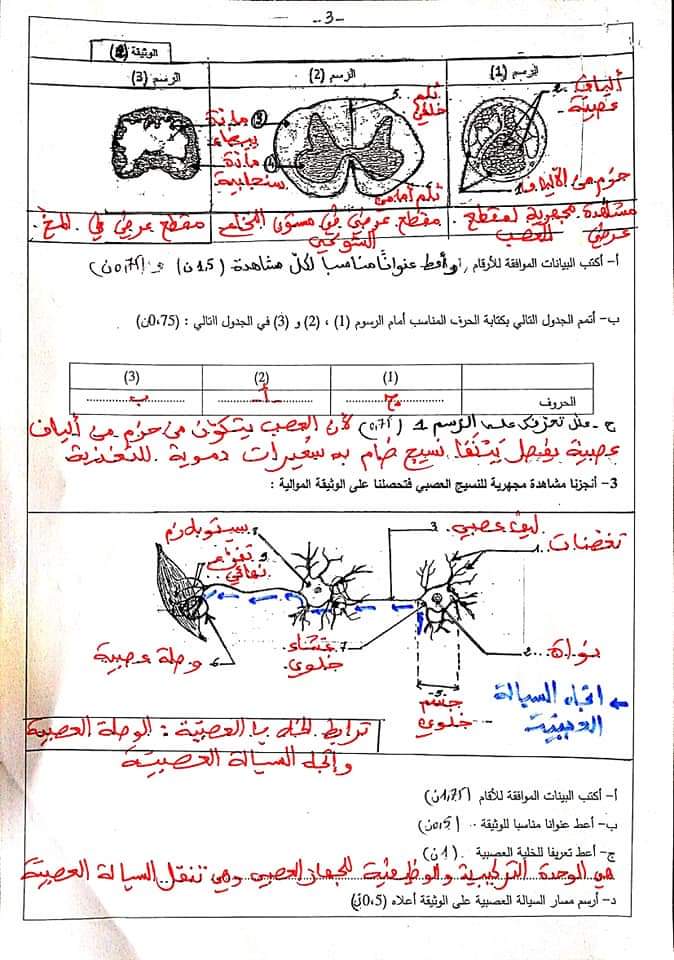 -3-
الوثيقة (2)
الرسم (1)
الرسم (2)
الرسم (3)
2. ألياف
عصبية
1. حزم من الألياف
5. ثلم
خلفي
ثلم أمامي
(3) مادة
بيضاء
(4) مادة
سنجابية
مشاهدة مجهرية لمقطع
عرضي للعصب
مقطع عرضي في مستوى النخاع
الشوكي
مقطع عرضي في المخ.
أ- أكتب البيانات الموافقة للأرقام , وأعط عنوانا مناسبا لكل مشاهدة (1,5ن) و (0,75ن)
ب- أتمم الجدول التالي بكتابة الحرف المناسب أمام الرسوم (1) ، (2) و (3) في الجدول االتالي : (0،75ن)
(1) (2) (3)
الحروف ج أ ب
ج - علل تعرفك على الرسم 1 (0,75) لأن العصب يتكون من حزم من ألياف
عصبية يفصل بينها نسيج ضام به شعيرات دموية للتغذية
3- أنجزنا مشاهدة مجهرية للنسيج العصبي فتحصلنا على الوثيقة الموالية :
1. تغضنات
2. نواة
3. ليف عصبي
سيتوبلازم
9. تفرع
نهائي
6. وصلة عصبية
7. غشاء
خلوي
5.
جسم
خلوي
← اتجاه السيالة
العصبية
ترابط الخلايا العصبية : الوصلة العصبية
واتجاه السيالة العصبية
أ- أكتب البينات الموافقة للأقام (1,75ن)
ب- أعط عنوانا مناسبا للوثيقة .. (0,5ن)
ج- أعط تعريفا للخلية العصبية . (1ن)
هي الوحدة التركيبية والوظيفية للجهاز العصبي وهي تنقل السيالة العصبية
د- أرسم مسار السيالة العصبية على الوثيقة أعلاه (0,5ن)